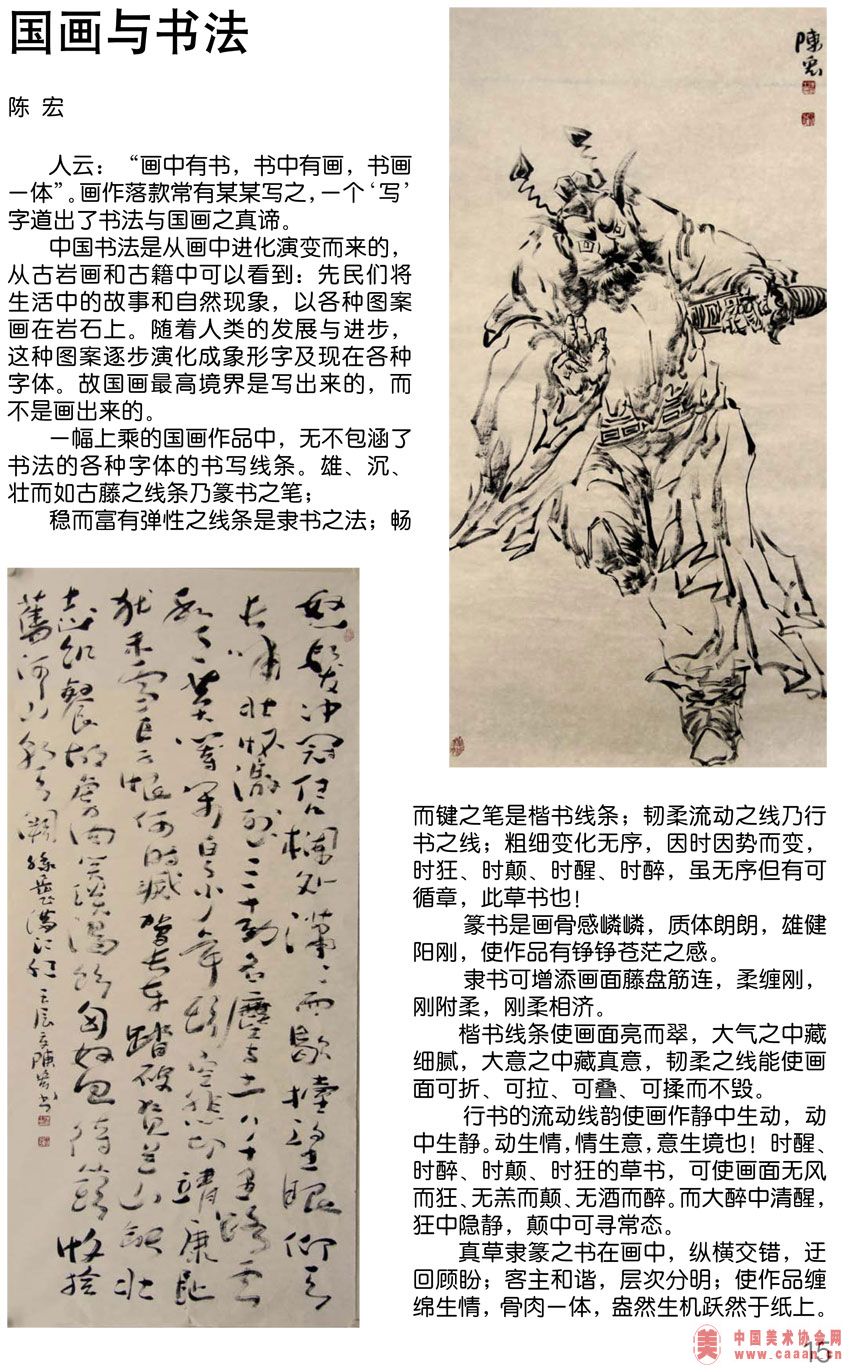 国画与书法
陈 宏
人云：“画中有书，书中有画，书画
一体”。画作落款常有某某写之，一个‘写’
字道出了书法与国画之真谛。
中国书法是从画中进化演变而来的，
从古岩画和古籍中可以看到：先民们将
生活中的故事和自然现象，以各种图案
画在岩石上。随着人类的发展与进步，
这种图案逐步演化成象形字及现在各种
字体。故国画最高境界是写出来的，而
不是画出来的。
一幅上乘的国画作品中，无不包涵了
书法的各种字体的书写线条。雄、沉、
壮而如古藤之线条乃篆书之笔；
稳而富有弹性之线条是隶书之法；畅
怒髮冲冠凭栏处潇潇雨歇抬望眼仰天
长啸壮怀激烈三十功名尘与土八千里路云
和月莫等闲白了少年头空悲切靖康耻
犹未雪臣子恨何时灭驾长车踏破贺兰山缺壮
志饥餐胡虏肉笑谈渴饮匈奴血待从头收拾
舊河山朝天阙
陳宏
而键之笔是楷书线条；韧柔流动之线乃行
书之线；粗细变化无序，因时因势而变，
时狂、时颠、时醒、时醉，虽无序但有可
循章，此草书也！
篆书是画骨感嶙嶙，质体朗朗，雄健
阳刚，使作品有铮铮苍茫之感。
隶书可增添画面藤盘筋连，柔缠刚，
刚附柔，刚柔相济。
楷书线条使画面亮而翠，大气之中藏
细腻，大意之中藏真意，韧柔之线能使画
面可折、可拉、可叠、可揉而不毁。
行书的流动线韵使画作静中生动，动
中生静。动生情，情生意，意生境也！时醒、
时醉、时颠、时狂的草书，可使画面无风
而狂、无羔而颠、无酒而醉。而大醉中清醒，
狂中隐静，颠中可寻常态。
真草隶篆之书在画中，纵横交错，迂
回顾盼；客主和谐，层次分明；使作品缠
绵生情，骨肉一体，盎然生机跃然于纸上。
美
中国美术协会网
www.caaan.cn
15